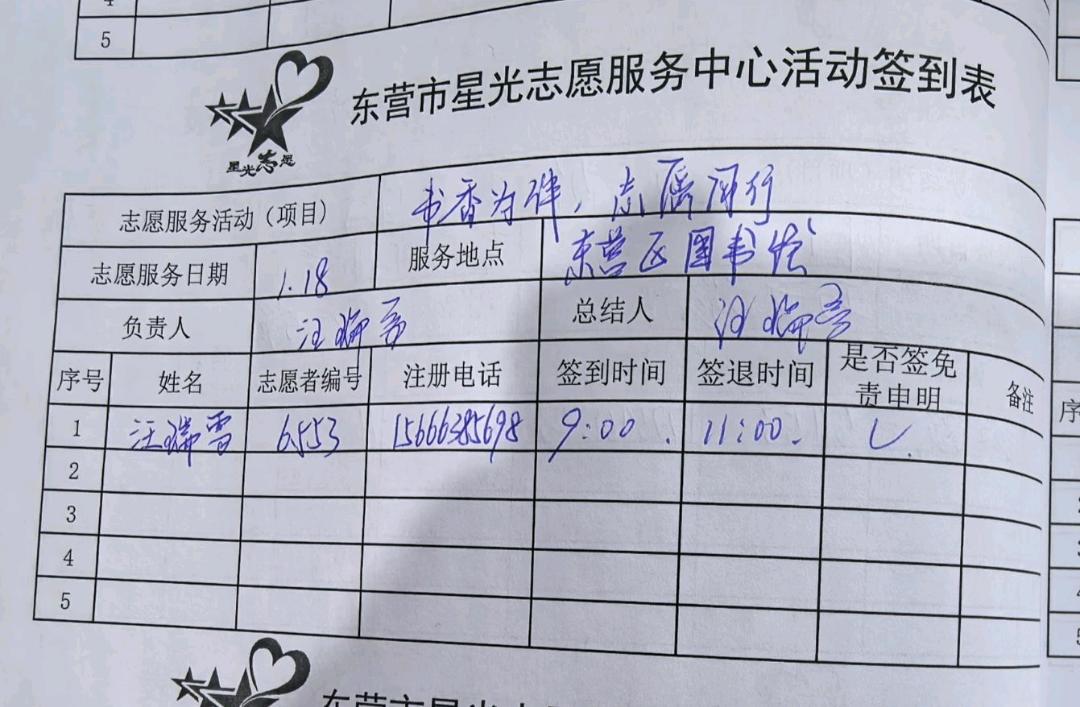 4
5
东营市星光志愿服务中心活动签到表
星光志愿
志愿服务活动（项目） 书香为伴，志愿同行
志愿服务日期 1.18 服务地点 东营区图书馆
负责人 汪瑞雪 总结人 汪瑞雪
序号 姓名 志愿者编号 注册电话 签到时间 签退时间 是否签免责申明 备注
1 汪瑞雪 6553 15666385698 9:00. 11:00.
2
3
4
5
序
东营市星光